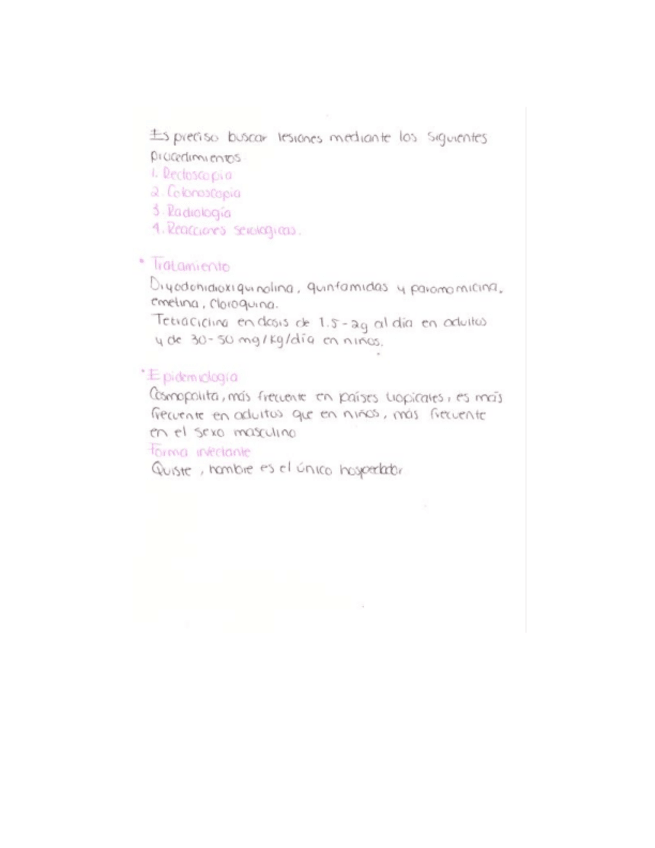 Es preciso buscar lesiones mediante los siguientes
procedimientos
1. Rectoscopia
2. Colonoscopia
3. Radiología
4. Reacciones serologicas.
* Tratamiento
Diyodohidroxiquinolina, quinfamidas y paromomicina,
emetina, Cloroquina.
Tetraciclina en dosis de 1.5-2g al día en adultos
y de 30-50 mg/kg/día en niños.
* Epidemiología
Cosmopolita, más frecuente en países tropicales, es más
frecuente en adultos que en niños, más frecuente
en el sexo masculino
Forma infectante
Quiste, hombre es el único hospedador